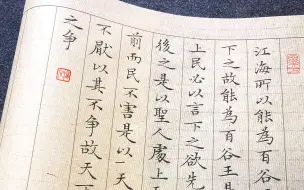 江海所以能為百谷
下之故能為百谷王
上民必以言下之欲先
後之是以聖人處上
前而民不害是以天
不厭以其不争故天
之争